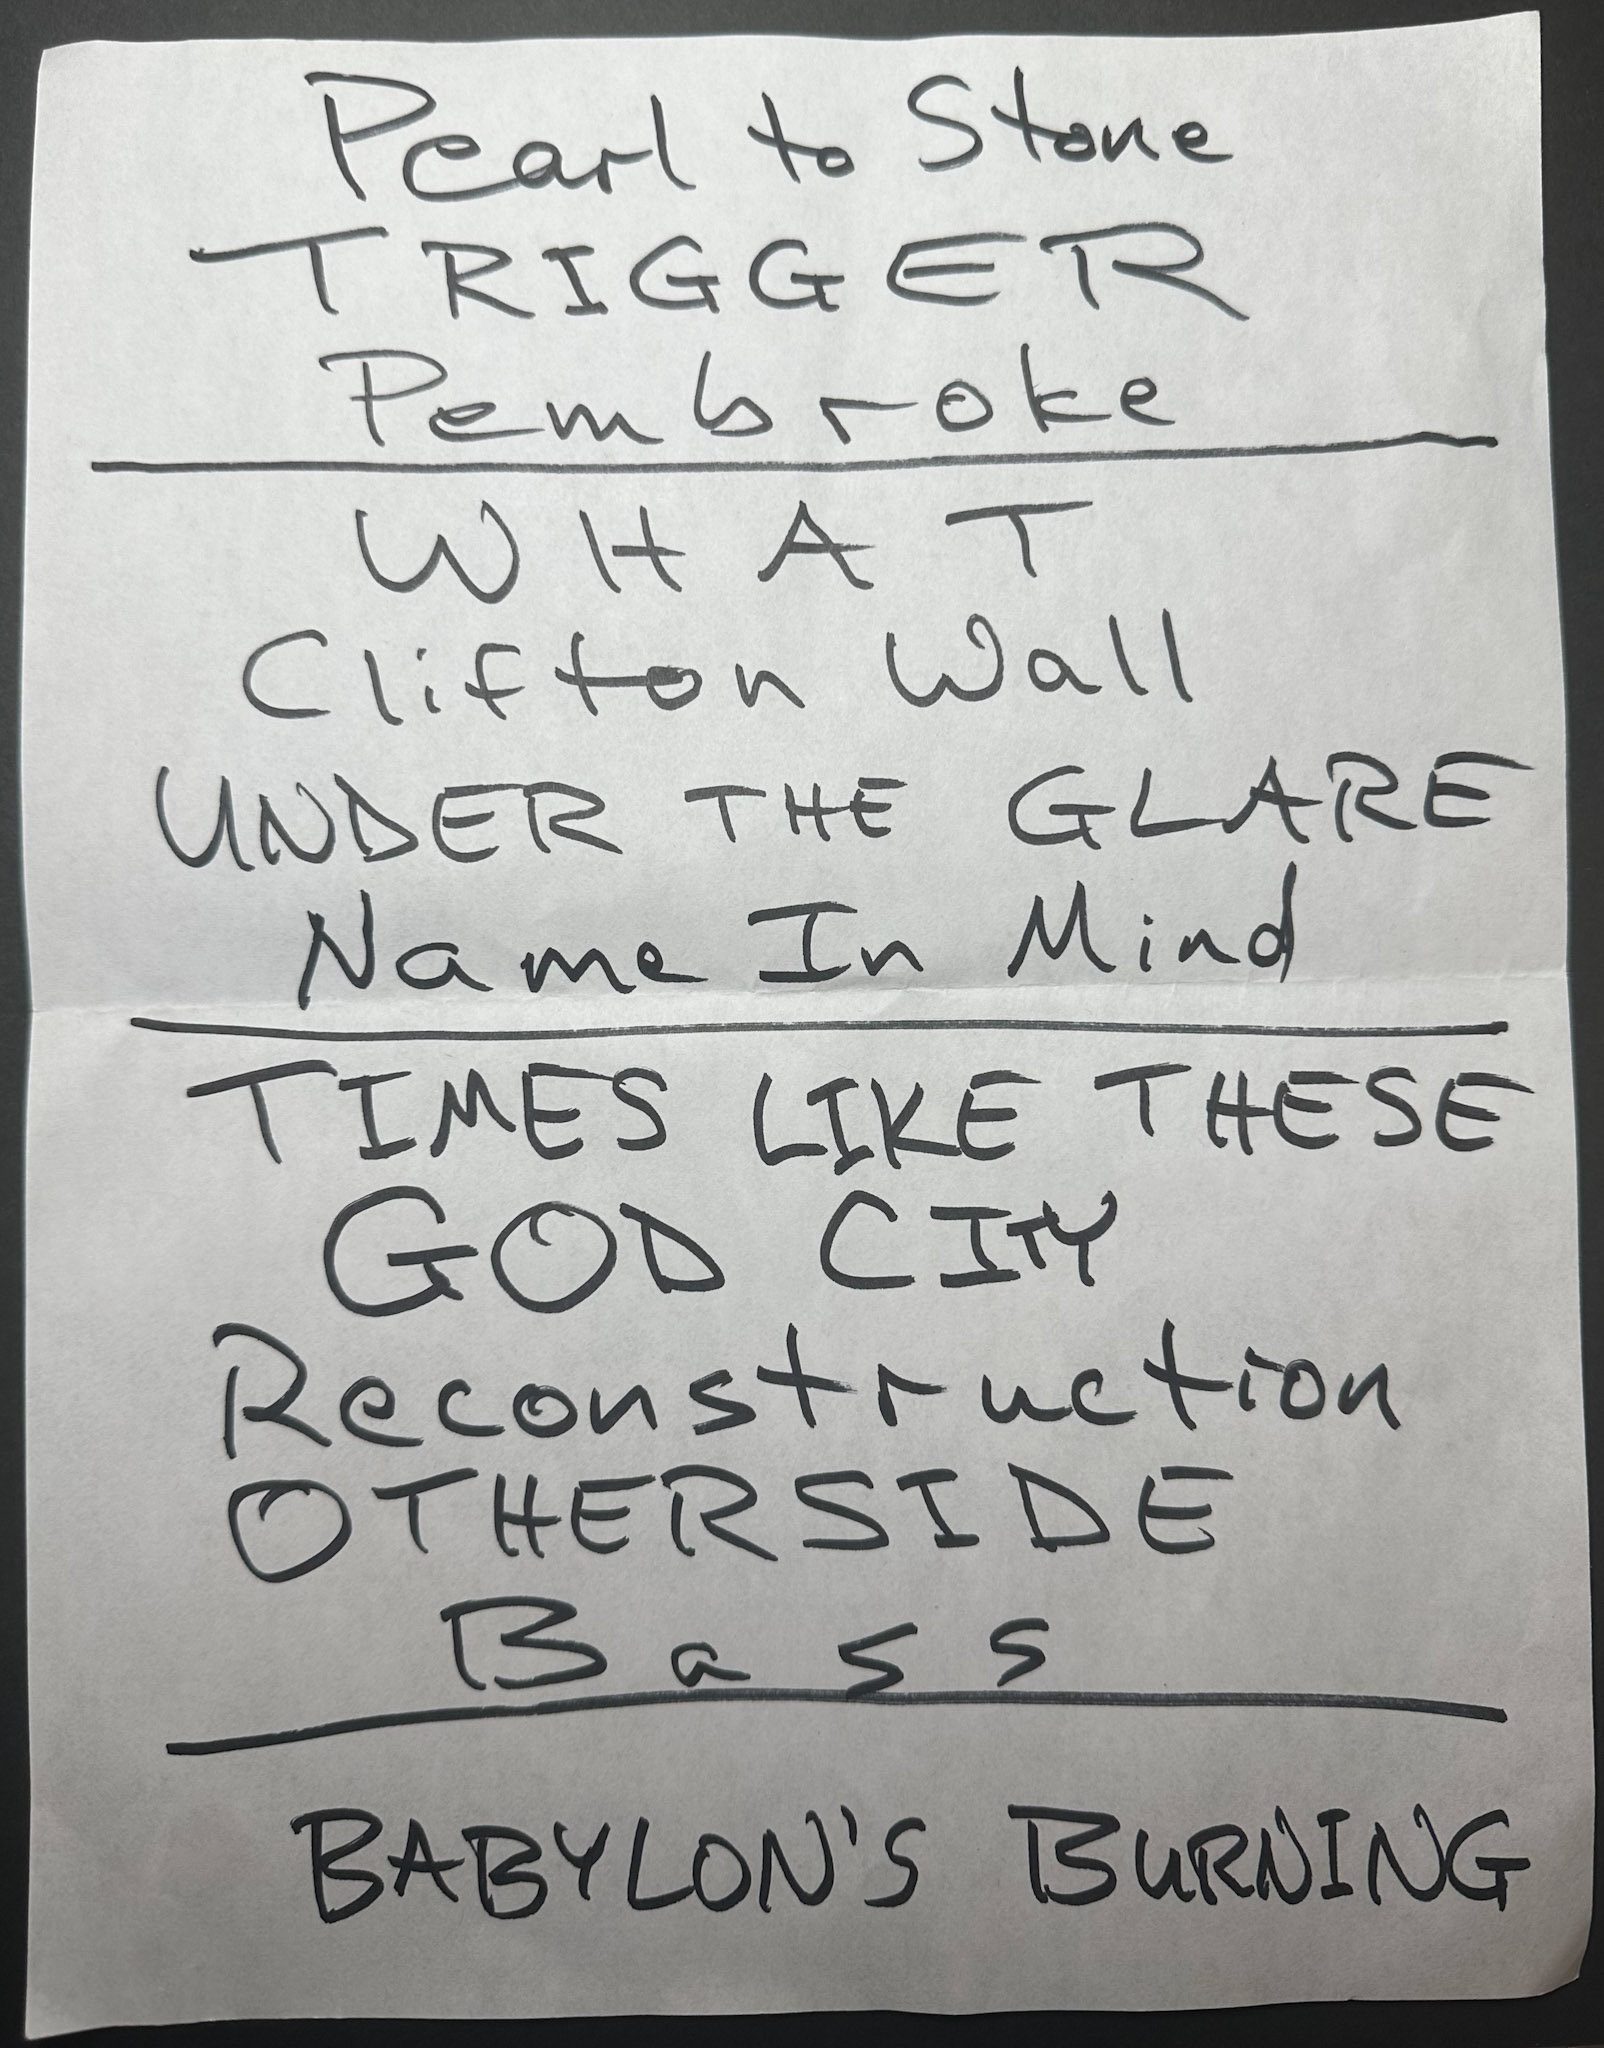 Pearl to Stone
TRIGGER
Pembroke
WHAT
Clifton Wall
UNDER THE GLARE
Name In Mind
TIMES LIKE THESE
GOD CITY
Reconstruction
OTHERSIDE
Bass
BABYLON'S BURNING